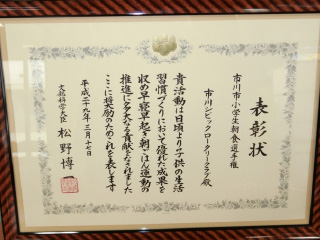 表彰状
市川市小学生朝食選手権
市川シビックロータリークラブ殿
貴活動は日頃より子供の生活
習慣づくりにおいて優れた成果を
収め早寝早起き朝ごはん運動の
推進に多大なる貢献をなされました
ここに将来励のためこれを表します
平成二十九年三月十七日
文部科学大臣 松野博一